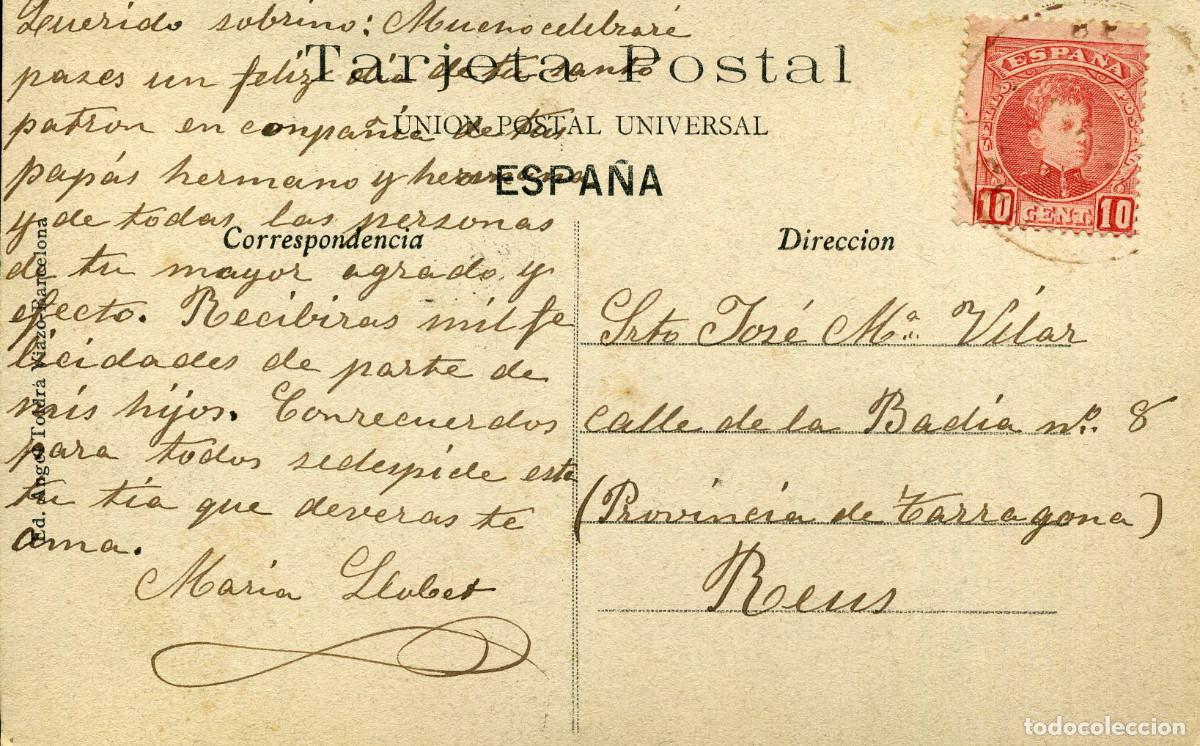 Querido sobrino: Mucho celebraré
pases un feliz dia de tu santo
patron en conpañia de tus
papás hermano y hermana
y de todas las personas
de tu mayor agrado y
efecto. Recibiras mil fe
licidades de parte de
mis hijos. Con recuerdos
para todos se despide esta
tu tia que deveras te
ama.
Maria Llobet
Tarjeta Postal
ÚNION POSTAL UNIVERSAL
ESPAÑA
Correspondencia
Direccion
Srto José Mª. Vilar
calle de la Badia nº. 8
(Provincia de Tarragona)
Reus
Ed. Angel Toldrá Viazo-Barcelona
ESPAÑA
10 CENT. 10
todocoleccion